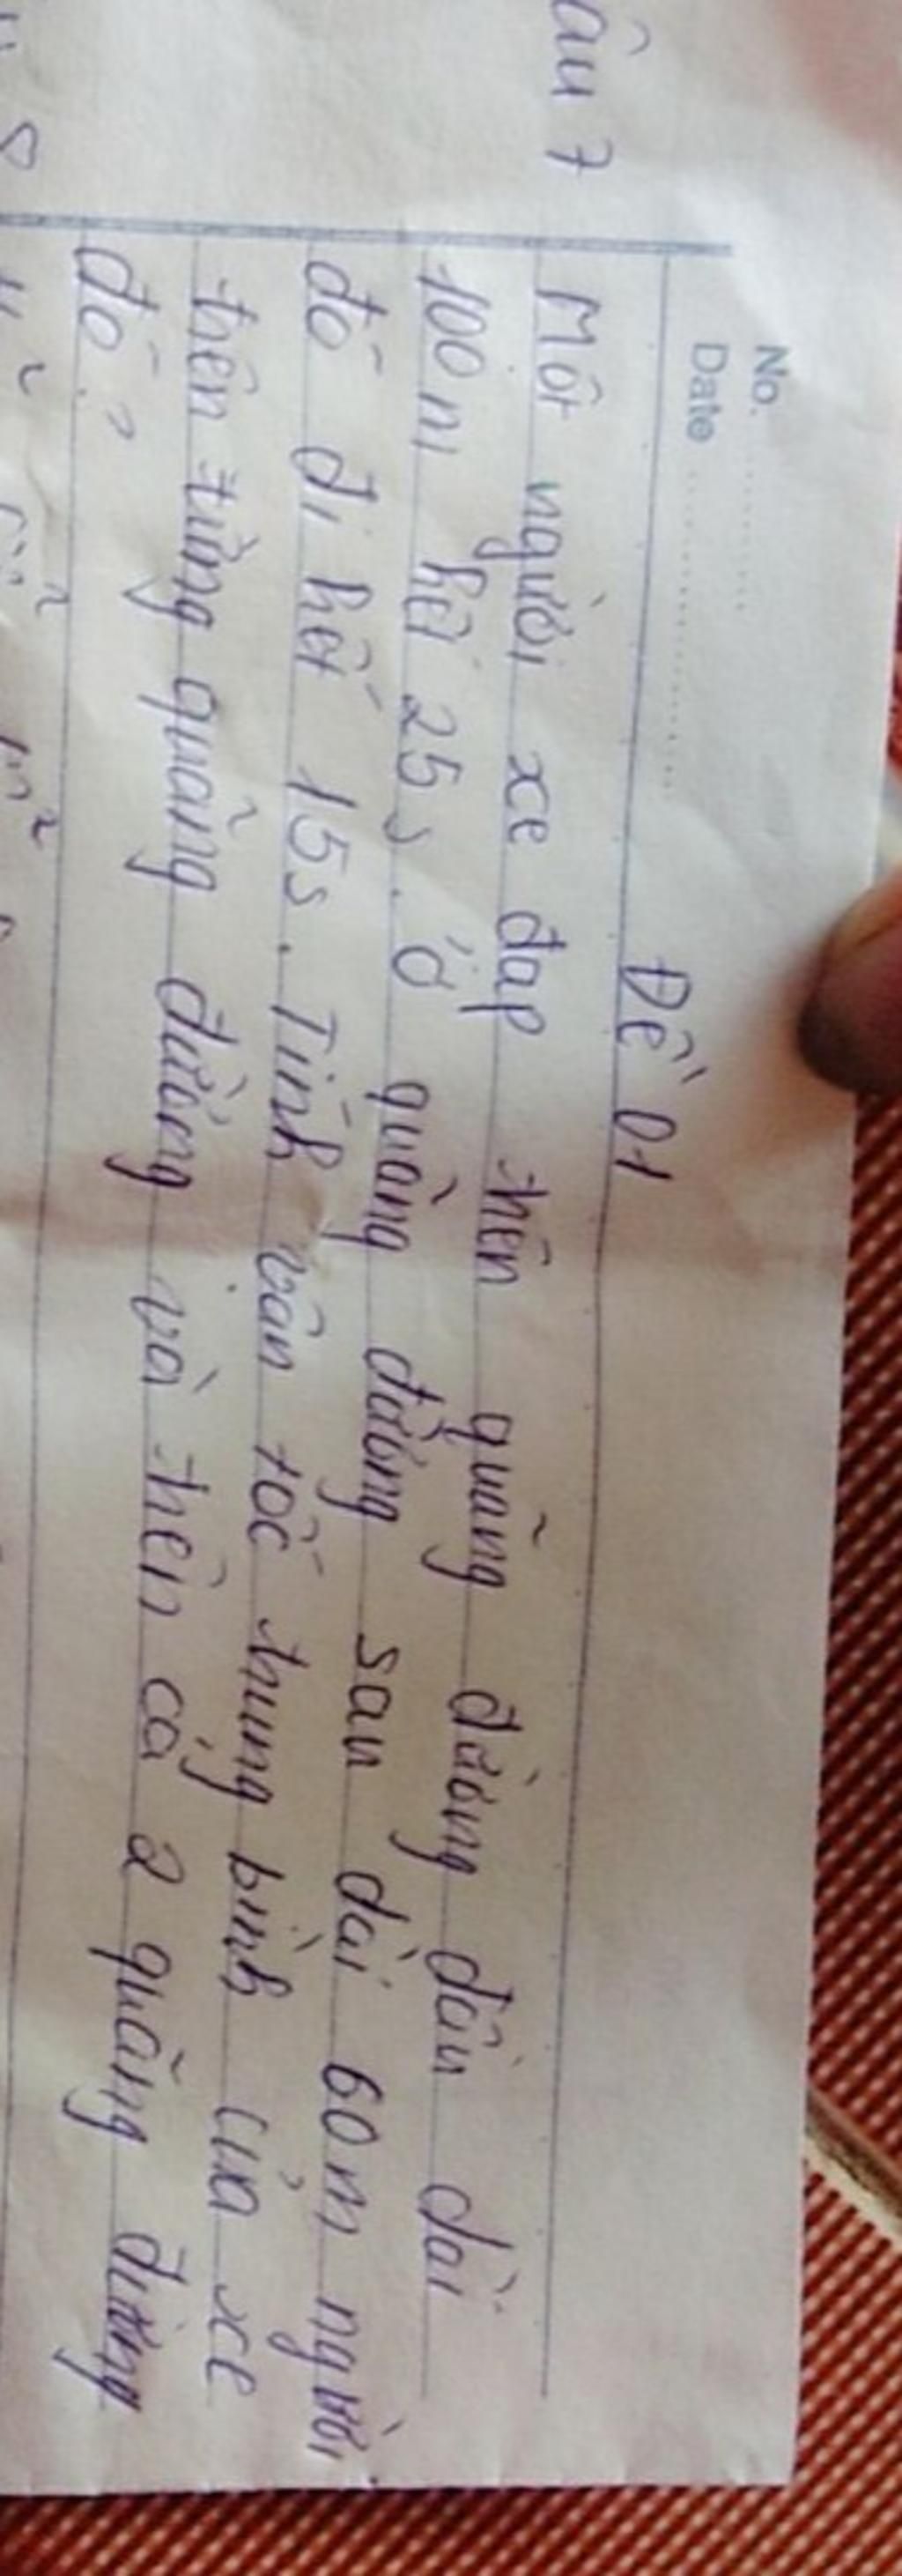 No. ............
Date ........................
Đề 01
âu 7
Một người xe đạp trên quãng đường đầu dài
100 m hết 25 s. ở quãng đường sau dài 60 m người
đó đi hết 15s. Tính vận tốc trung bình của xe
trên từng quãng đường và trên cả 2 quãng đường
đó ?